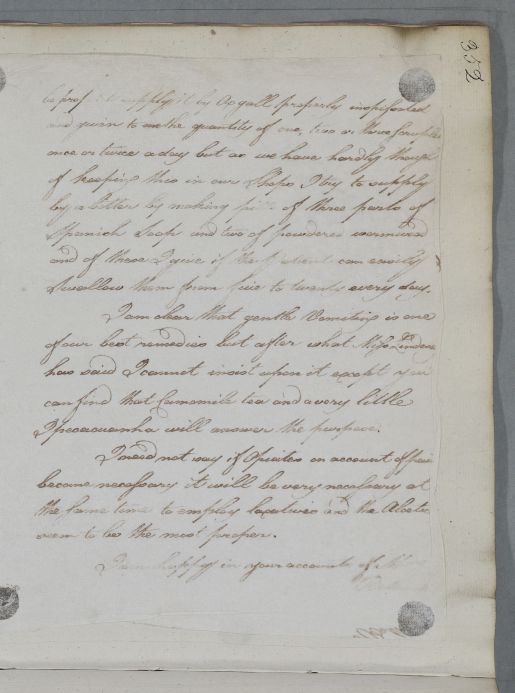 352
supply it by Oxgall properly inspissated
and given to the quantity of one, two or three scruples
once or twice a day but as we have hardly thought
of keeping this in our Shops I try to supply
by a bitter by making pills of three parts of
Spanish Soap and two of powdered wormwood
and of these I give if the Patient can easily
swallow them from five to twenty every day.
I am clear that gentle Vomiting is one
of our best remedies but after what
has said I cannot insist upon it except you
can find that Camomile tea and a very little
Ipecacuanha will answer the purpose.
I need not say if Opiates on account of pain
become necessary it will be very necessary at
the same time to employ laxatives and the Aloetic
seem to be the most proper.
I am happy in your accounts of